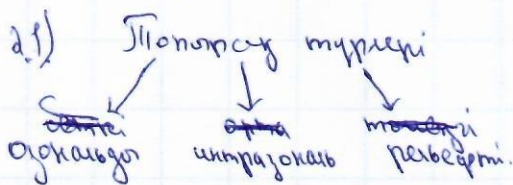 2.1) Топырақ түрлері
озональды интразональ рельефті.